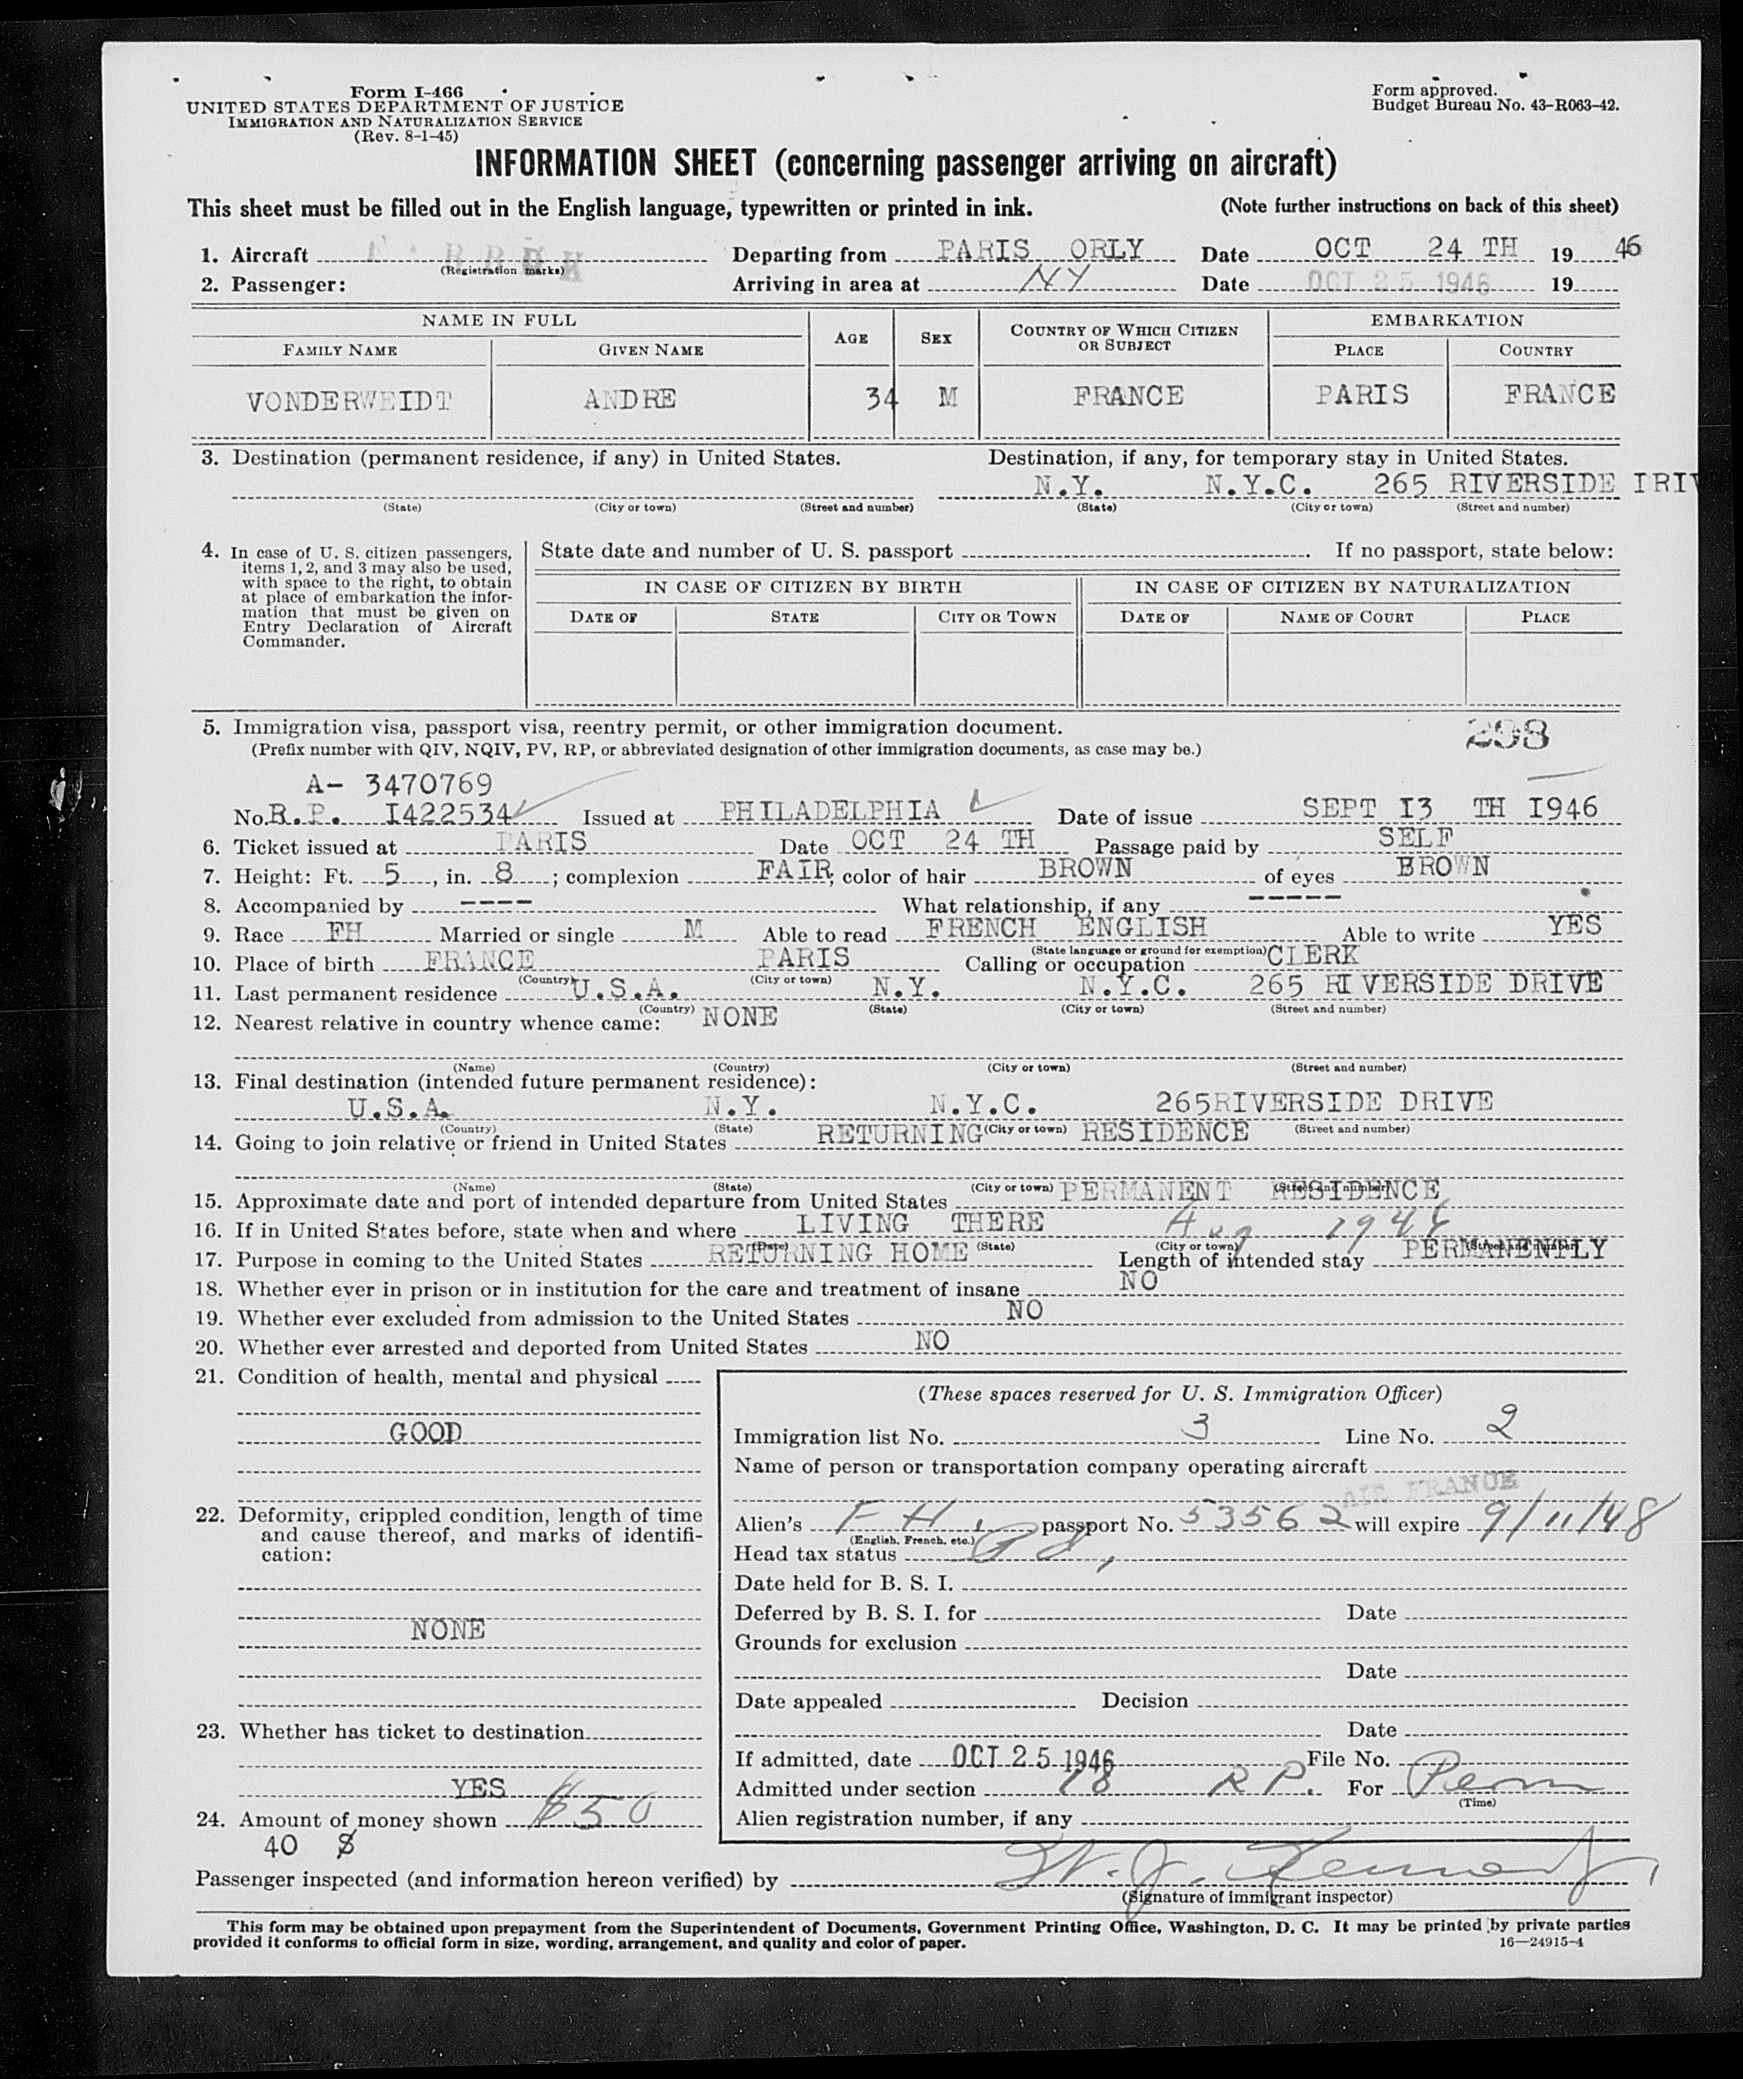 Form I-466
UNITED STATES DEPARTMENT OF JUSTICE
IMMIGRATION AND NATURALIZATION SERVICE
(Rev. 8-1-45)
Form approved.
Budget Bureau No. 43-R063-42.
INFORMATION SHEET (concerning passenger arriving on aircraft)
This sheet must be filled out in the English language, typewritten or printed in ink. (Note further instructions on back of this sheet)
1. Aircraft Departing from PARIS ORLY Date OCT 24 TH 19 46
(Registration marks)
2. Passenger: Arriving in area at NY Date OCT 25 1946 19
NAME IN FULL AGE SEX COUNTRY OF WHICH CITIZEN OR SUBJECT EMBARKATION
FAMILY NAME GIVEN NAME PLACE COUNTRY
VONDERWEIDT ANDRE 34 M FRANCE PARIS FRANCE
3. Destination (permanent residence, if any) in United States. Destination, if any, for temporary stay in United States.
N.Y. N.Y.C. 265 RIVERSIDE IRIV
(State) (City or town) (Street and number) (State) (City or town) (Street and number)
4. In case of U. S. citizen passengers, items 1, 2, and 3 may also be used, with space to the right, to obtain at place of embarkation the information that must be given on Entry Declaration of Aircraft Commander.
State date and number of U. S. passport . If no passport, state below:
IN CASE OF CITIZEN BY BIRTH IN CASE OF CITIZEN BY NATURALIZATION
DATE OF STATE CITY OR TOWN DATE OF NAME OF COURT PLACE
5. Immigration visa, passport visa, reentry permit, or other immigration document. 298
(Prefix number with QIV, NQIV, PV, RP, or abbreviated designation of other immigration documents, as case may be.)
A- 3470769
No. R.P. I422534 Issued at PHILADELPHIA Date of issue SEPT I3 TH I946
6. Ticket issued at PARIS Date OCT 24 TH Passage paid by SELF
7. Height: Ft. 5, in. 8; complexion FAIR; color of hair BROWN of eyes BROWN
8. Accompanied by ---- What relationship, if any -----
9. Race FH Married or single M Able to read FRENCH ENGLISH Able to write YES
(State language or ground for exemption)
10. Place of birth FRANCE PARIS Calling or occupation CLERK
(Country) (City or town)
11. Last permanent residence U.S.A. N.Y. N.Y.C. 265 RIVERSIDE DRIVE
(Country) (State) (City or town) (Street and number)
12. Nearest relative in country whence came: NONE
(Name) (Country) (City or town) (Street and number)
13. Final destination (intended future permanent residence):
U.S.A. N.Y. N.Y.C. 265RIVERSIDE DRIVE
(Country) (State) (City or town) (Street and number)
14. Going to join relative or friend in United States RETURNING RESIDENCE
(Name) (State) (City or town) (Street and number)
15. Approximate date and port of intended departure from United States PERMANENT RESIDENCE
16. If in United States before, state when and where LIVING THERE Aug 1946
(Date) (State) (City or town) (Street and number)
17. Purpose in coming to the United States RETURNING HOME Length of intended stay PERMANENTLY
18. Whether ever in prison or in institution for the care and treatment of insane NO
19. Whether ever excluded from admission to the United States NO
20. Whether ever arrested and deported from United States NO
21. Condition of health, mental and physical
GOOD
22. Deformity, crippled condition, length of time and cause thereof, and marks of identification:
NONE
23. Whether has ticket to destination
YES
24. Amount of money shown $50
40 $
(These spaces reserved for U. S. Immigration Officer)
Immigration list No. 3 Line No. 2
Name of person or transportation company operating aircraft
AIR FRANCE
Alien's F H. passport No. 53562 will expire 9/11/48
(English, French, etc.)
Head tax status Pd,
Date held for B. S. I.
Deferred by B. S. I. for Date
Grounds for exclusion
Date
Date appealed Decision
Date
If admitted, date OCT 25 1946 File No.
Admitted under section 18 R P. For Perm
(Time)
Alien registration number, if any
Passenger inspected (and information hereon verified) by W. J. Kennedy
(Signature of immigrant inspector)
This form may be obtained upon prepayment from the Superintendent of Documents, Government Printing Office, Washington, D. C. It may be printed by private parties
provided it conforms to official form in size, wording, arrangement, and quality and color of paper.
16—24915-4